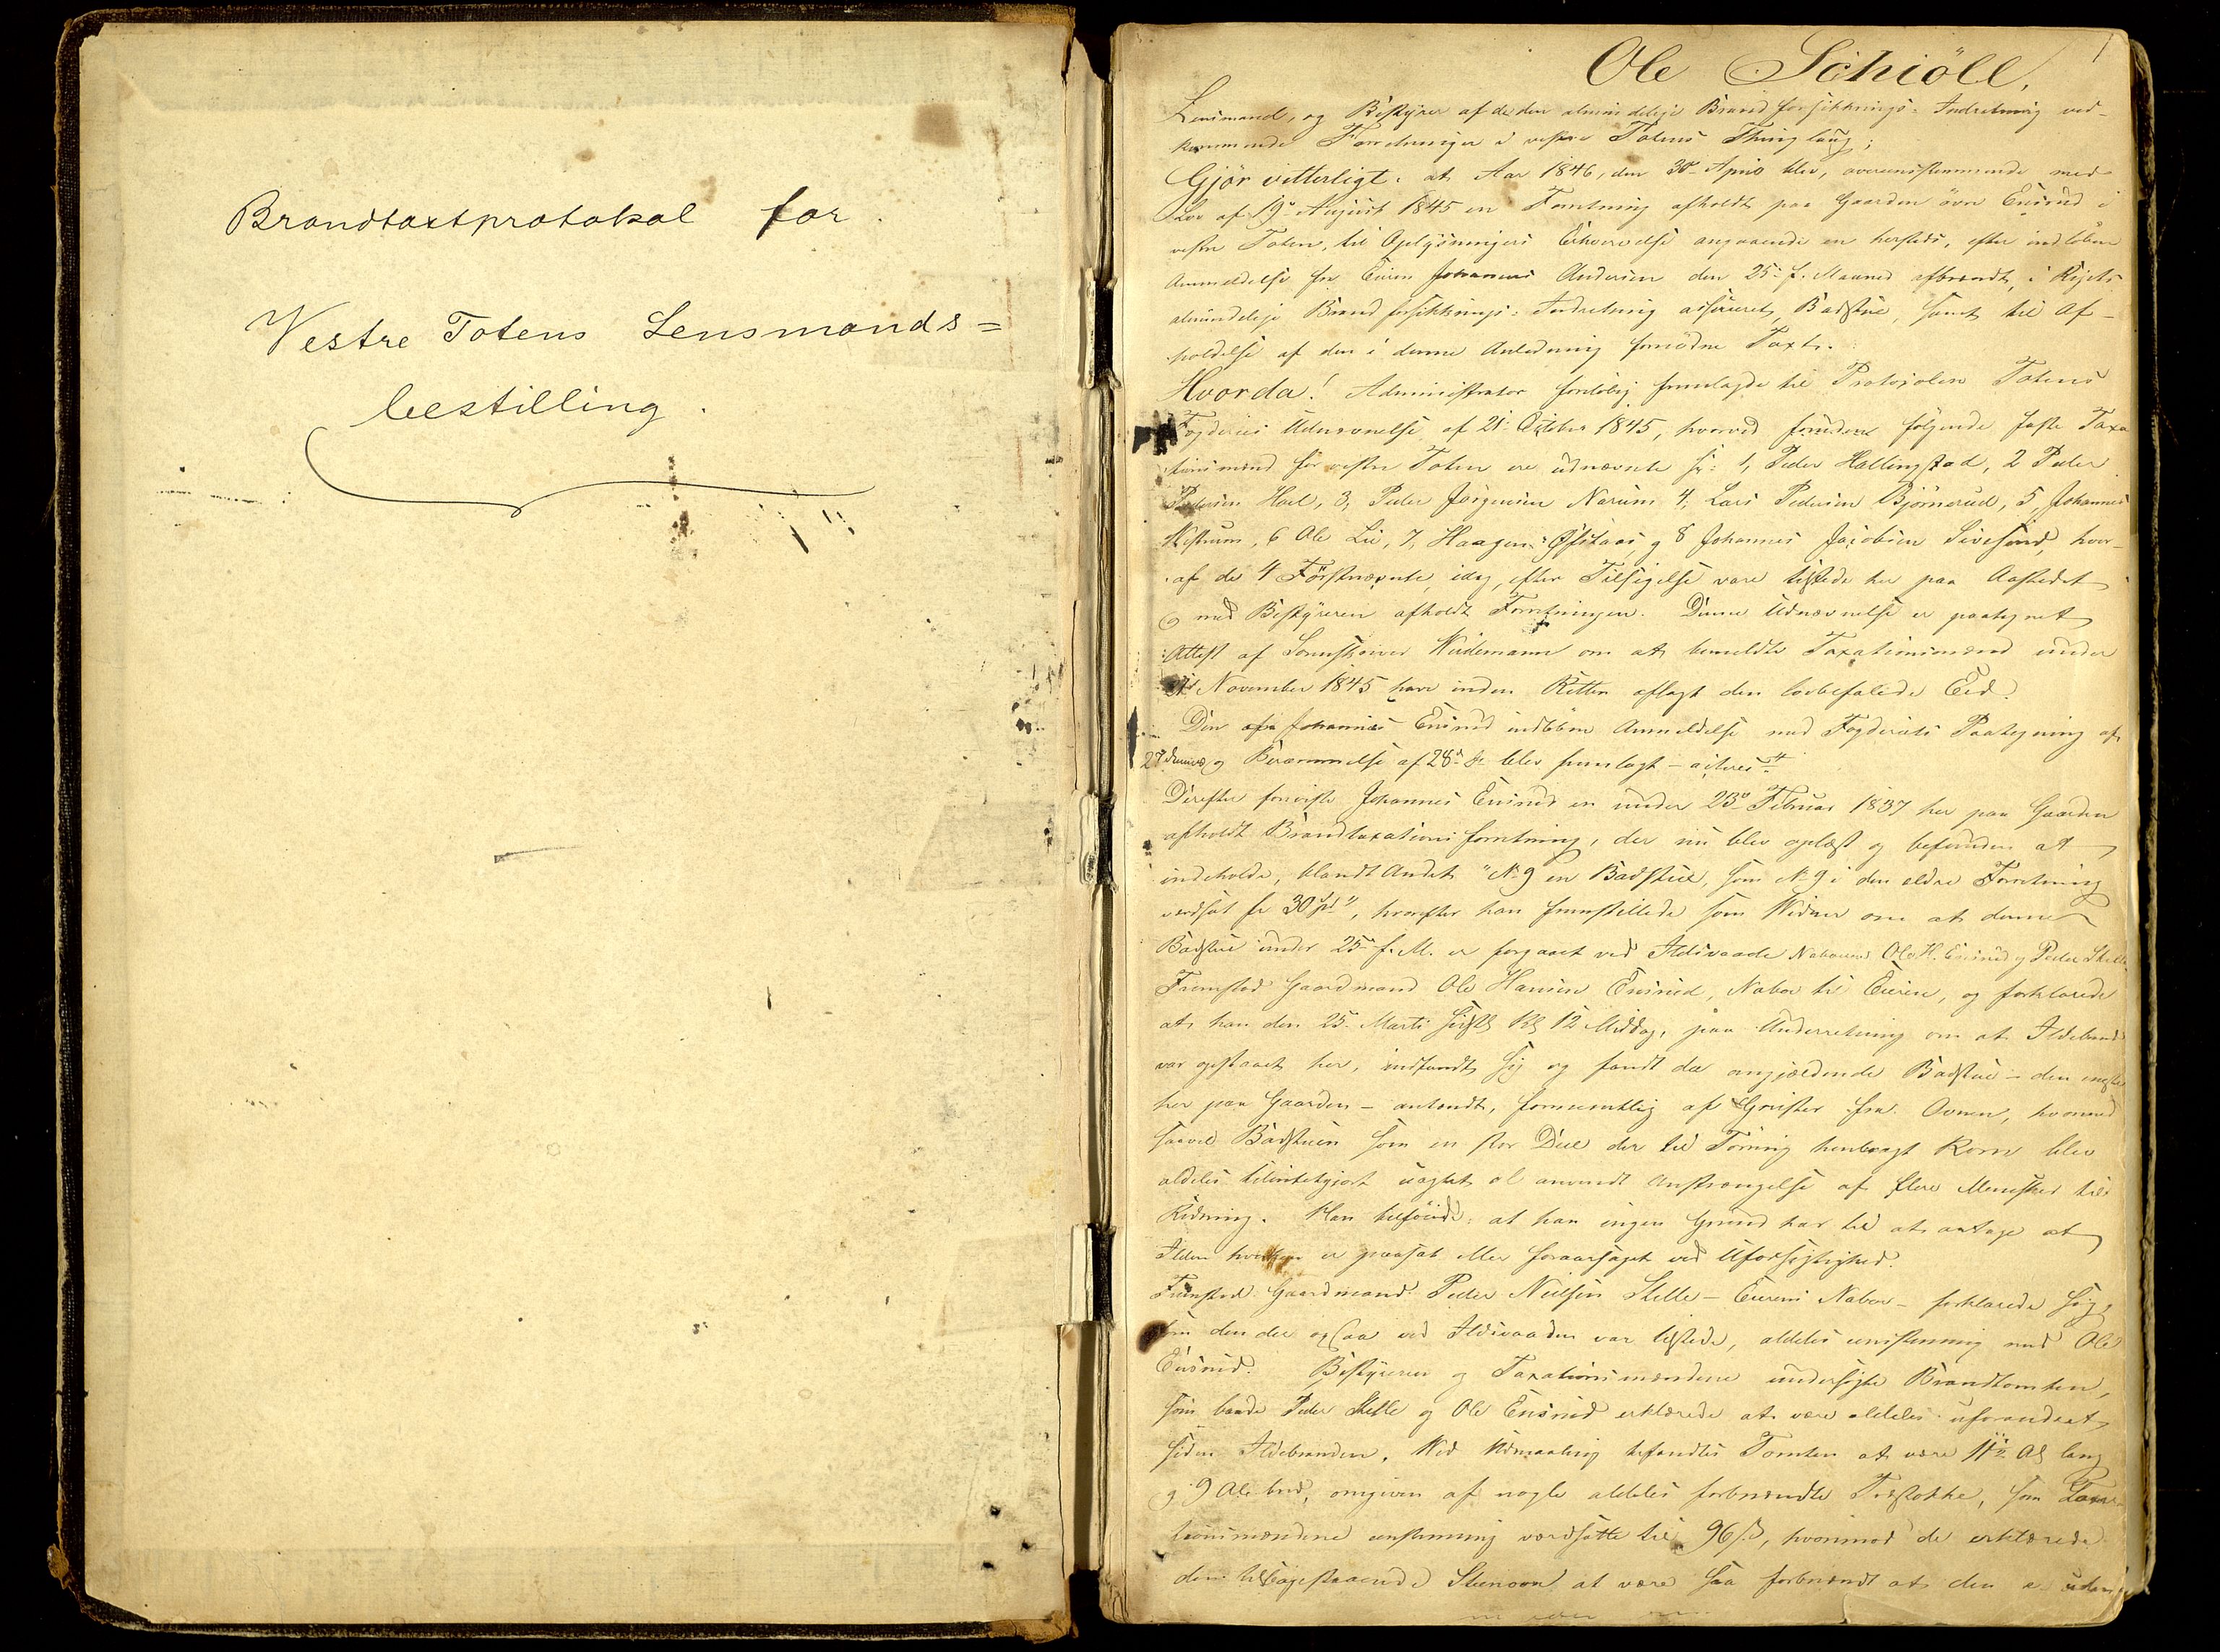 Brandtaxtprotokol for
Vestre Totens Lensmands=
bestilling.
1
Ole Schiöll,
Lensmand, og Bestyrer af de den almindelige Brandforsikkrings-Indretning ved-
kommende Forretninger i vestre Totens Thinglaug;
Gjör vitterligt: at Aar 1846, den 30 April blev, overeensstemmende med
Lov af 19 August 1845 en Forretning afholdt paa Gaarden övre Eensrud i
vestre Toten, til Oplysningers Erhvervelse angaaende en hersteds, efter indløben
Anmeldelse fra Eieren Johannes Andersen den 25 f. Maaned afbrændt, i Rigets
almindelige Brandforsikkrings-Indretning assureret, Badstue, samt til Af-
holdelse af den i denne Anledning fornødne Taxt.
Hvorda! Administrator foreløbig fremlagde til Protocolen Totens
Fogderies Udnævnelse af 21 October 1845, hvorved følgende faste Taxa
tionsmænd for vestre Toten ere udnævnte 1, Peder Hallingstad, 2 Peder
Pedersen Hoel, 3, Peder Jörgensen Narum 4, Lars Pedersen Björnerud, 5, Johannes
6 Ole Lie, 7, Haagen og 8 Johannes Jacobsen Sivesind, hvor-
af de 4 Förstnævnte, idag, efter Tilsigelse vare tilstede her paa Aastedet
og med Bestyreren afholdt Forretningen. Denne Udnævnelse er paategnet
Attest af Sorenskriver Weidemann om at bemeldte Taxationsmænd under
November 1845 have inden Retten aflagt den lovbefalede Eed.
Den af Johannes Eensrud indløbne Anmeldelse med Fogderiets Paategning af
27 og Berammelse af 28 blev fremlagt
Derefter foreviste Johannes Eensrud en under 23 Februar 1837 her paa Gaarden
afholdt Brandtaxationsforretning, der nu blev oplæst og befunden at
indeholde, blandt Andet: "No 9 en Badstue, som No 9 i den ældre Forretning
værdsat for 30 Spd", hvorefter han fremstillede som Vidner om at denne
Badstue under 25 f. M. er forgaaet ved Ildsvaade Naboerne Ole H. Eensrud og Peder
Fremstod Gaardmand Ole Hansen Eensrud, Nabo til Eieren, og forklarede
at han den 25 Marti sidstl. Kl 12 Middag, paa Underretning om at Ildebrand
var opstaaet her, indfandt sig og fandt da angjældende Badstue – den eneste
her paa Gaarden – antændt, formeentlig af Gnister fra Ovnen, hvorved
saavel Badstuen som en stor Deel der til Törring henbragt Korn blev
aldeles tilintetgjort uagtet al anvendt Anstrængelse af flere Mennesker til
Redning. Han tilföiede: at han ingen Grund har til at antage at
Ilden hverken er paasat eller foraarsaget ved Uforsigtighed.
Fremstod Gaardmand Peder Nielsen Stelle – Eierens Nabo – forklarede sig,
som den der ogsaa ved Ildsvaaden var tilstede, aldeles eenstemmig med Ole
Eensrud. Bestyreren og Taxationsmændene undersøgte Brandtomten,
som baade Peder Stelle og Ole Eensrud erklærede at være aldeles uforandret
siden Ildebranden. Ved Udmaaling befandtes Tomten at være 11½ Al lang
og 9 Al bred, omgiven af nogle aldeles forbrændte Træstokke, som Taxa
tionsmændene eenstemmig værdsatte til 96 s, hvorimod de erklærede
den tilbagestaaende Steenovn at være saa forbrændt at den er uden